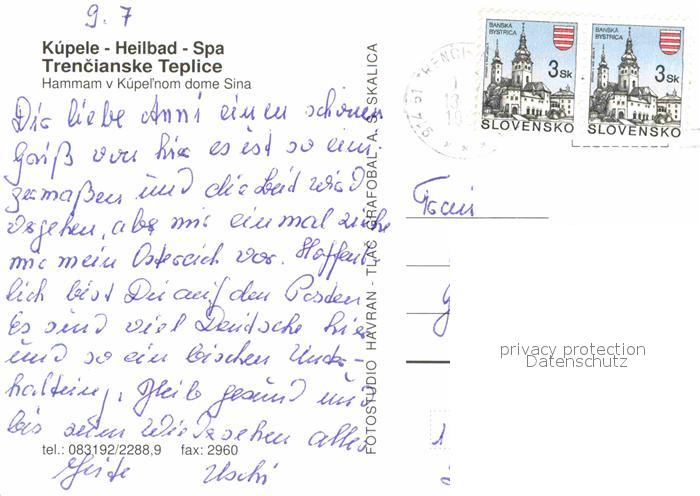 9.7
Kúpele - Heilbad - Spa
Trenčianske Teplice
Hammam v Kúpeľnom dome Sina
Dir liebe Anni einen schönen
Gruß von hier es ist so eini-
germaßen und die Zeit wird
vergehen, aber mir einmal ziehe
mir mein Österreich vor. Hoffent-
lich bist Du auf den Posten
Es sind viel Deutsche hier
und so ein bischen Unter-
haltung, Bleib gesund und
bis zum Wiedersehen alles
tel.: 083192/2288,9 fax: 2960
Gute Uschi
FOTOSTUDIO HAVRAN - TLAČ GRAFOBAL A. S. SKALICA
BANSKÁ
BYSTRICA
3 Sk
SLOVENSKO
BANSKÁ
BYSTRICA
3 Sk
SLOVENSKO
Frau
privacy protection
Datenschutz